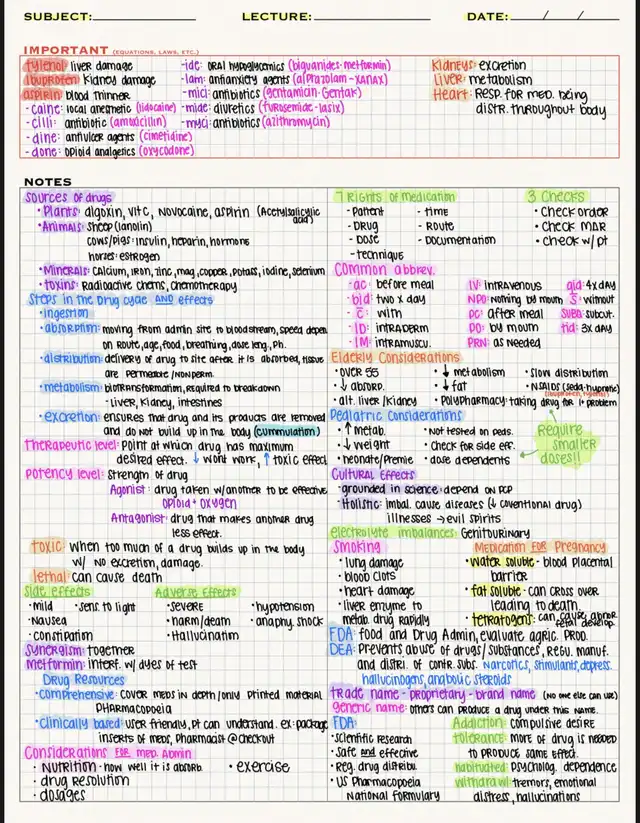 SUBJECT: LECTURE: DATE: / /
IMPORTANT (EQUATIONS, LAWS, ETC.)
tylenol liver damage
ibuprofen kidney damage
aspirin blood thinner
-caine: local anesthetic (lidocaine)
-cilli: antibiotic (amoxicillin)
-dine: antiulcer agents (cimetidine)
-done: opioid analgesics (oxycodone)
-ide: oral hypoglycemics (biguanides-metformin)
-lam: antianxiety agents (alprazolam-xanax)
-mici: antibiotics (gentamian-Gentak)
-mide: diuretics (furosemide-lasix)
-myci: antibiotics (azithromycin)
Kidneys: excretion
Liver: metabolism
Heart: RESP. for med. being
distr. throughout body
NOTES
Sources of drugs
• Plants: digoxin, vit C, Novocaine, aspirin (Acetylsalicylic
acid)
• Animals: Sheep (lanolin)
cows/pigs: insulin, heparin, hormone
horses: estrogen
• Minerals: Calcium, Iron, zinc, mag, copper, potass, iodine, selenium
• Toxins: radioactive chems, chemotherapy
Steps in the Drug cycle AND effects
• ingestion
• absorption: moving from admin site to bloodstream, speed depen
on Route, age, food, breathing, dose leng, Ph.
• distribution: delivery of drug to site after it is absorbed, tissue
are permeable/nonperm.
• metabolism: biotransformation, required to breakdown
- liver, kidney, intestines
• excretion: ensures that drug and its products are removed
and do not build up in the body (cummulation)
Therapeutic level: Point at which drug has maximum
desired effect. ↓ wont work, ↑ toxic effect
Potency level: Strength of drug
Agonist: drug taken w/another to be effective
opioid + oxygen
Antagonist: drug that makes another drug
less effect.
toxic: when too much of a drug builds up in the body
w/ no excretion, damage.
lethal: can cause death
Side effects
• mild • sens. to light
• Nausea
• constipation
Adverse Effects
• severe • hypotension
• harm/death • anaphy. shock
• Hallucination
Synergism: together
Metformin: interf. w/ dyes of test
Drug Resources
• Comprehensive: cover meds in depth/only printed material
Pharmacopoeia
• Clinically based: user friendly, pt can understand. ex: package
inserts of meds, Pharmacist @ checkout
Considerations FOR med. Admin
• Nutrition - how well it is absorb. • exercise
• drug resolution
• dosages
7 Rights of medication
- Patient - time
- Drug - Route
- Dose - Documentation
- technique
3 Checks
• Check order
• Check MAR
• Check w/ pt
Common abbrev.
- ac: before meal
- bid: two x day
- c: with
- ID: intraderm
- IM: intramuscu.
IV: Intravenous
NPO: Nothing by mouth
PC: after meal
PO: by mouth
PRN: as needed
qid: 4x day
S: without
SUBQ: subcut.
tid: 3x day
Elderly Considerations
• over 55 • ↓ metabolism • slow distribution
• ↓ absorp. • ↓ fat • NSAIDS (seda-hypnotic)
(ibuprofen, tylenol)
• alt. liver/kidney • Polypharmacy: taking drug for 1+ problem
Pediatric Considerations
• ↑ metab. • Not tested on peds.
• ↓ weight • Check for side eff.
• neonate/Premie • dose dependents
Require
smaller
doses!!
Cultural Effects
- grounded in science: depend on PCP
- Holistic: imbal. cause diseases (↓ coventional drug)
illnesses → evil spirits
electrolyte imbalances: Genitourinary
Smoking
• lung damage
• blood clots
• heart damage
• liver enzyme to
metab. drug rapidly
Medication FOR Pregnancy
• Water soluble - blood placental
barrier
• fat soluble - can cross over
leading to death
• tetratogens: can cause abnor
fetal develop.
FDA: food and Drug Admin, evaluate agric. prod.
DEA: Prevents abuse of drugs/substances, regu. manuf.
and distri. of contr. subs. Narcotics, stimulants, depress.
hallucinogens, anabolic steroids
trade name - proprietary - brand name (no one else can use)
generic name: others can produce a drug under this name.
FDA:
• scientific research
• Safe and effective
• Reg. drug distribu.
• US Pharmacopoeia
National Formulary
Addiction: compulsive desire
tolerance: more of drug is needed
to produce same effect.
habituated: psycholog. dependence
withdrawl: tremors, emotional
distress, hallucinations